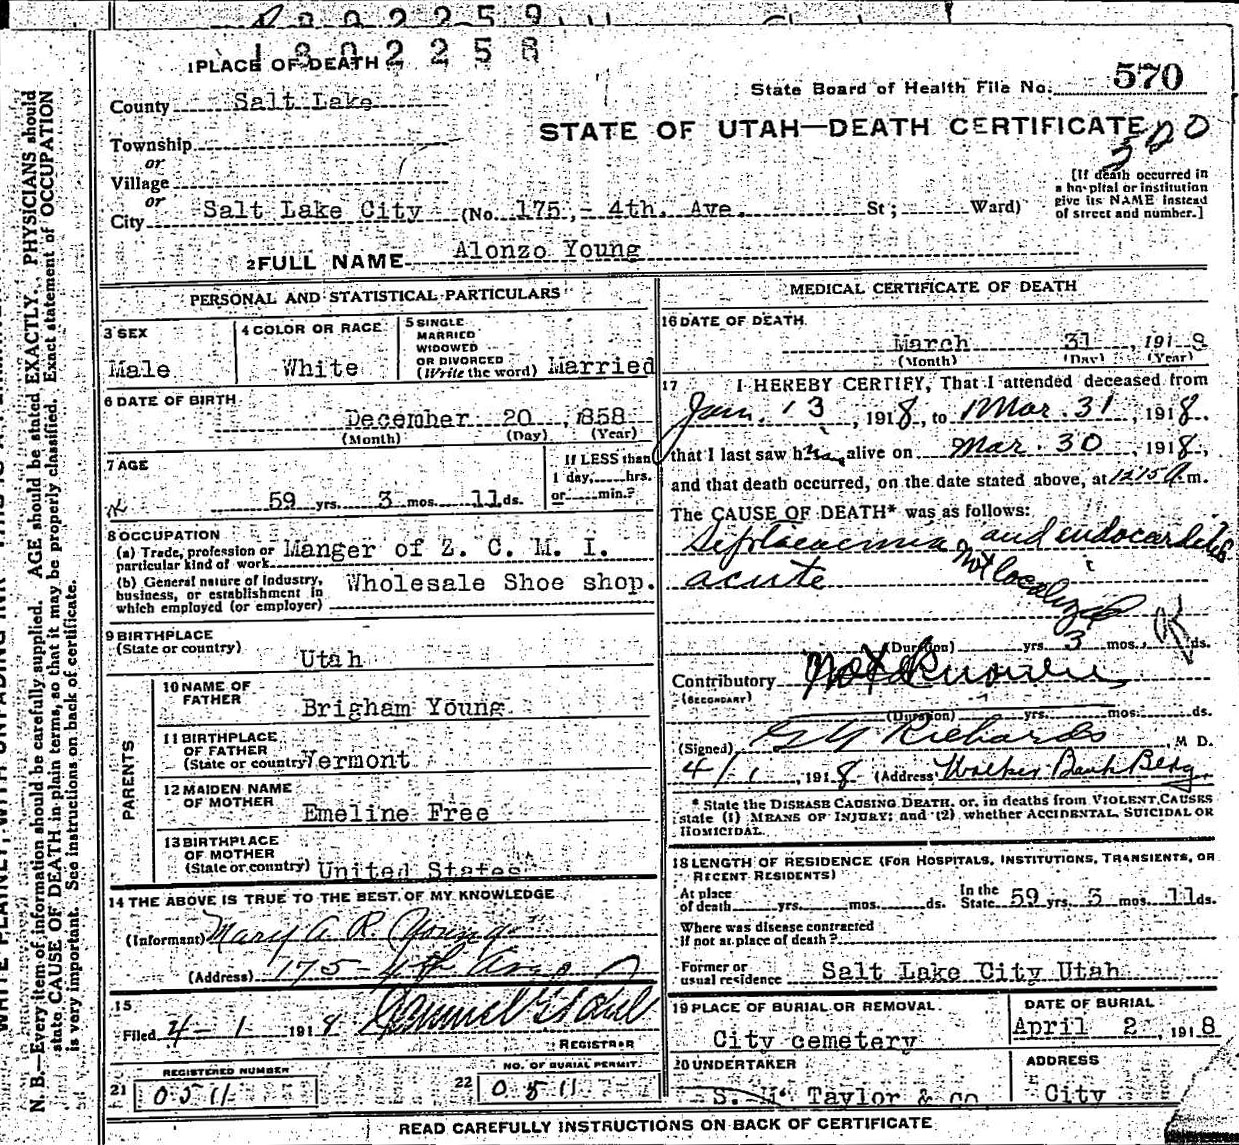 1802259
1802258
1 PLACE OF DEATH
County Salt Lake
State Board of Health File No. 570
Township
STATE OF UTAH—DEATH CERTIFICATE
300
or
Village
or
City Salt Lake City (No. 175,- 4th. Ave. St; Ward)
[If death occurred in
a hospital or institution
give its NAME instead
of street and number.]
2 FULL NAME Alonzo Young
PERSONAL AND STATISTICAL PARTICULARS
3 SEX
Male
4 COLOR OR RACE
White
5 SINGLE
MARRIED
WIDOWED
OR DIVORCED
(Write the word) Married
6 DATE OF BIRTH
December 20, 1858
(Month) (Day) (Year)
7 AGE
59 yrs. 3 mos. 11 ds.
If LESS than
1 day, hrs.
or min.?
8 OCCUPATION
(a) Trade, profession or
particular kind of work Manger of Z. C. M. I.
(b) General nature of industry,
business, or establishment in
which employed (or employer) Wholesale Shoe shop.
9 BIRTHPLACE
(State or country)
Utah
PARENTS
10 NAME OF
FATHER
Brigham Young
11 BIRTHPLACE
OF FATHER
(State or country) Vermont
12 MAIDEN NAME
OF MOTHER
Emeline Free
13 BIRTHPLACE
OF MOTHER
(State or country) United States
14 THE ABOVE IS TRUE TO THE BEST OF MY KNOWLEDGE
(Informant) Mary A. R. Young
(Address) 175 - 4th Ave
15
Filed 4-1 1918
REGISTRAR
REGISTERED NUMBER
21 0511
NO. OF BURIAL PERMIT
22 0511
MEDICAL CERTIFICATE OF DEATH
16 DATE OF DEATH
March 31, 1918
(Month) (Day) (Year)
17 I HEREBY CERTIFY, That I attended deceased from
Jan. 13, 1918, to Mar. 31, 1918.
that I last saw him alive on Mar. 30, 1918,
and that death occurred, on the date stated above, at 1215 A m.
The CAUSE OF DEATH* was as follows:
Septicaemia and endocarditis
acute
Not localized
(Duration) yrs. 3 mos. ds.
Contributory Not Known
(SECONDARY)
(Duration) yrs. mos. ds.
(Signed) G G Richards, M D.
4/1, 1918 (Address) Walker Bank Bldg.
* State the DISEASE CAUSING DEATH, or, in deaths from VIOLENT CAUSES
state (1) MEANS OF INJURY; and (2) whether ACCIDENTAL, SUICIDAL OR
HOMICIDAL.
18 LENGTH OF RESIDENCE (FOR HOSPITALS, INSTITUTIONS, TRANSIENTS, OR
RECENT RESIDENTS)
At place
of death yrs. mos. ds.
In the
State 59 yrs. 3 mos. 11 ds.
Where was disease contracted
if not at place of death?
Former or
usual residence Salt Lake City Utah
19 PLACE OF BURIAL OR REMOVAL
City cemetery
DATE OF BURIAL
April 2, 1918
20 UNDERTAKER
S. M. Taylor & co
ADDRESS
City
READ CAREFULLY INSTRUCTIONS ON BACK OF CERTIFICATE
N. B.—Every item of information should be carefully supplied. AGE should be stated EXACTLY. PHYSICIANS should
state CAUSE OF DEATH in plain terms, so that it may be properly classified. Exact statement of OCCUPATION
is very important. See instructions on back of certificate.